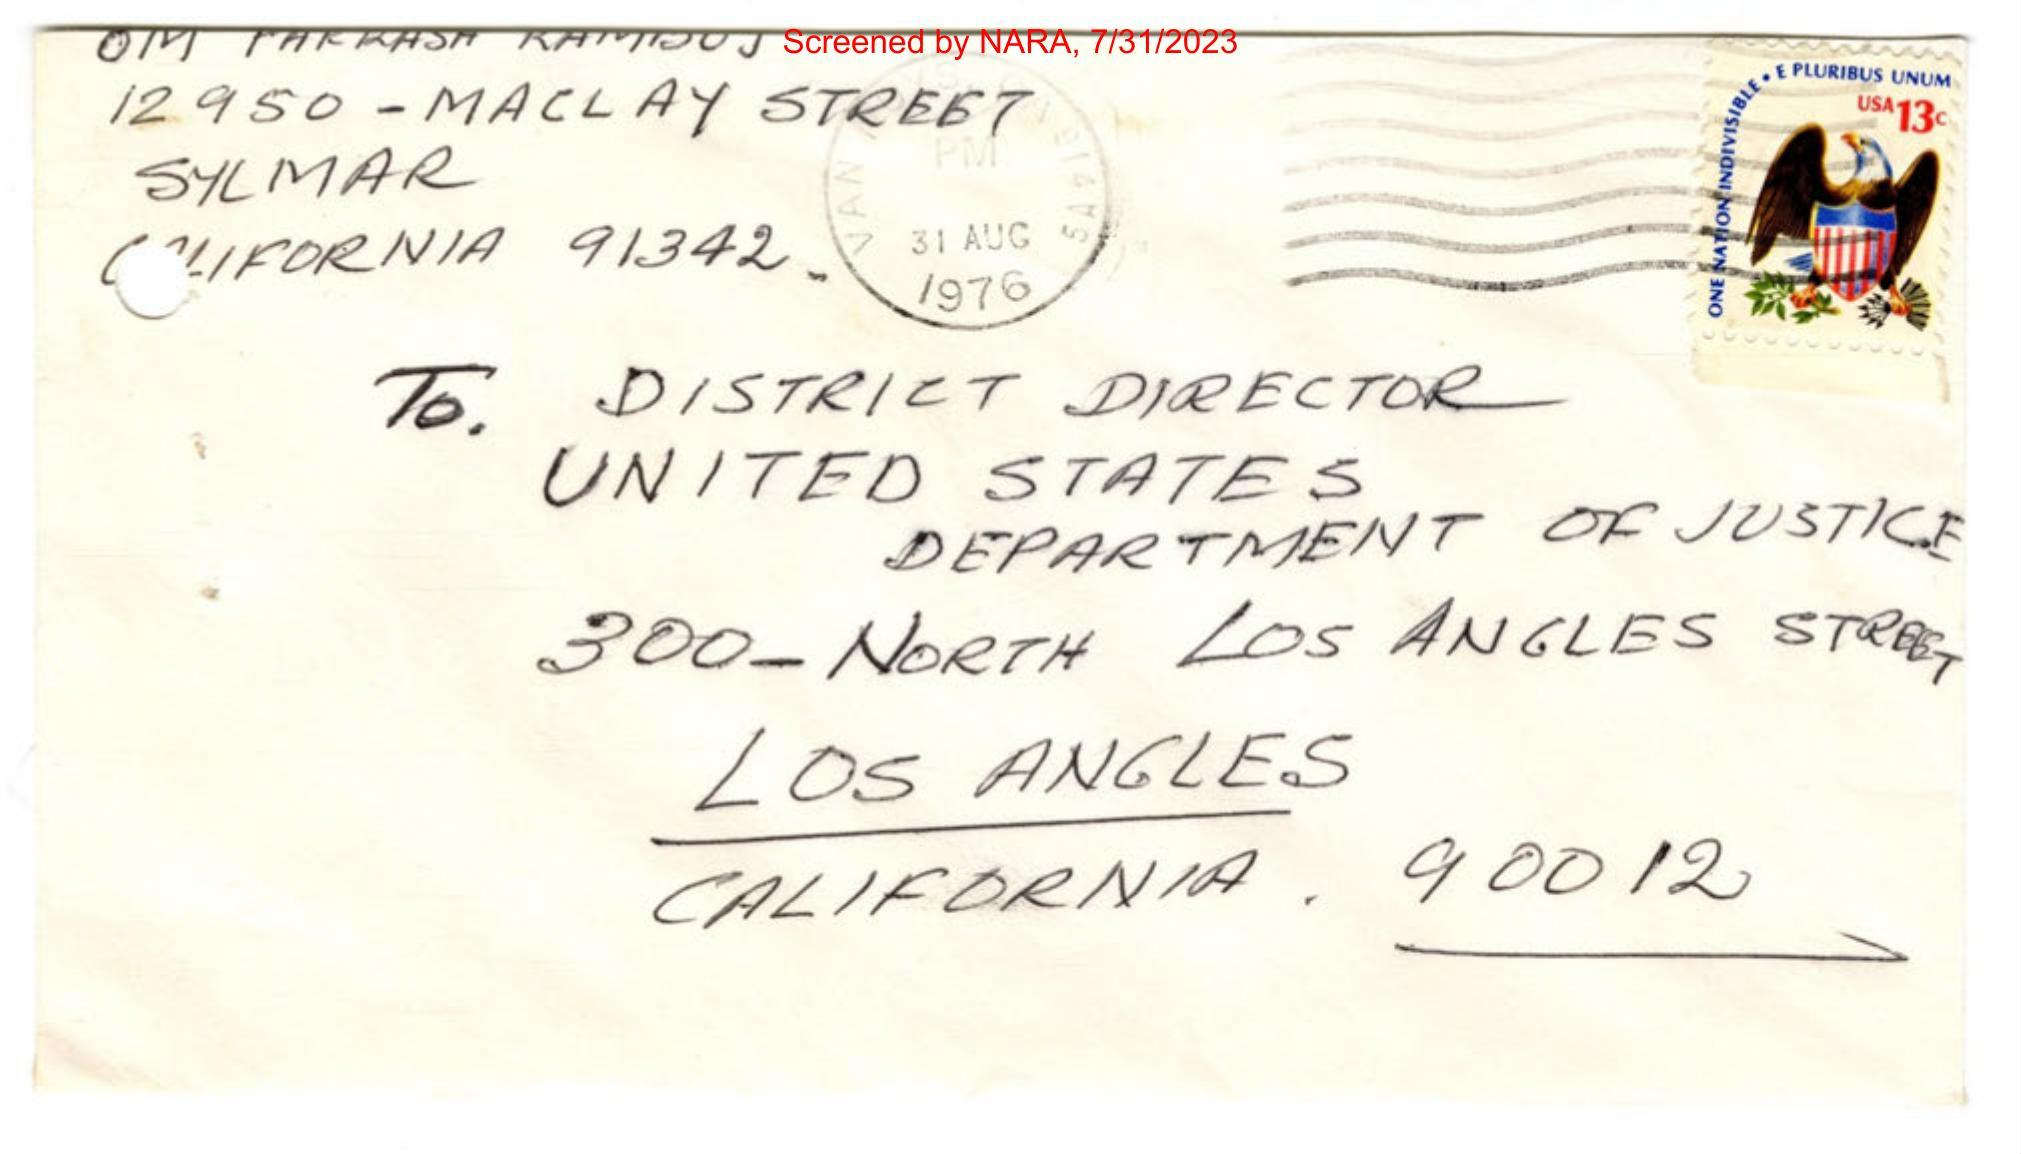 Screened by NARA, 7/31/2023
OM PARKASH
12950 - MACLAY STREET
SYLMAR
CALIFORNIA 91342.
VAN
PM
31 AUG
1976
ONE NATION INDIVISIBLE • E PLURIBUS UNUM
USA 13c
To. DISTRICT DIRECTOR
UNITED STATES
DEPARTMENT OF JUSTICE
300 - NORTH LOS ANGLES STREET
LOS ANGLES
CALIFORNIA. 90012